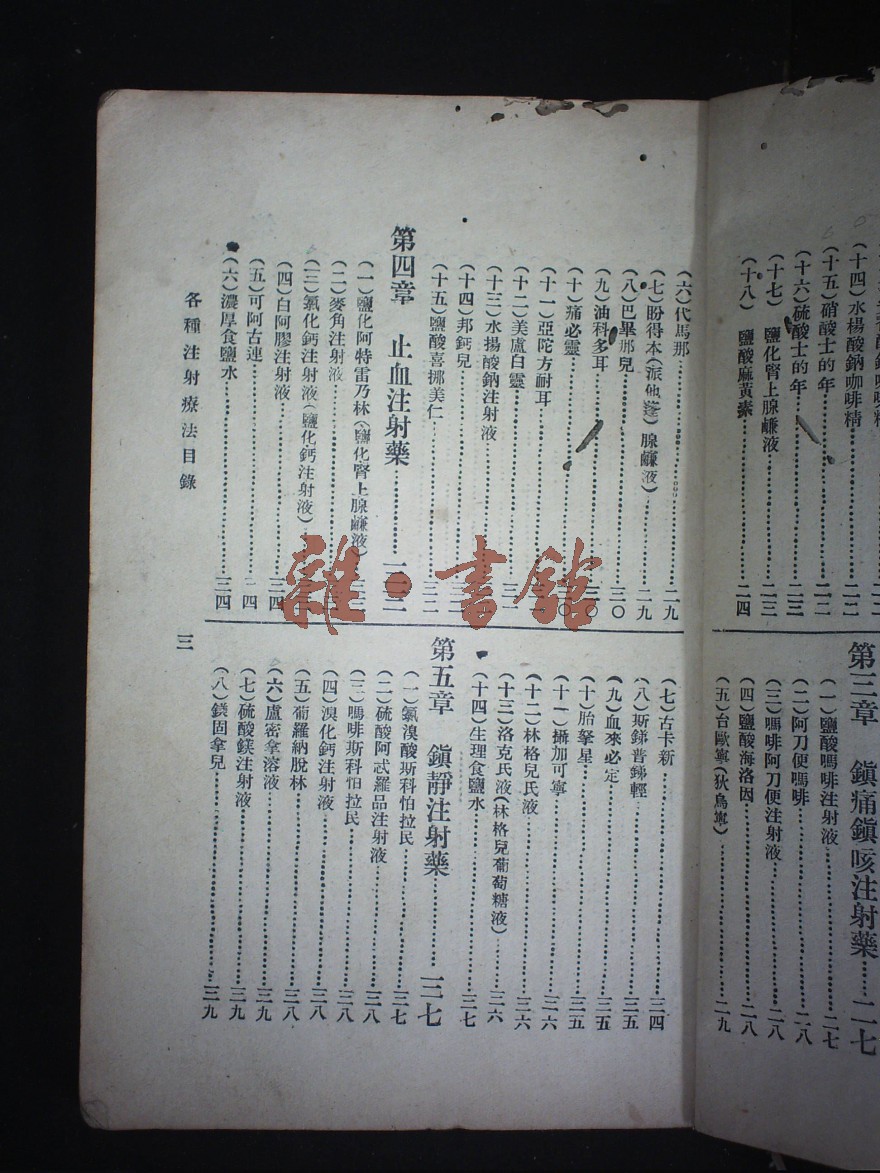 (十四)水楊酸鈉咖啡精……二二
(十五)硝酸士的年……二二
(十六)硫酸士的年……二三
(十七) 鹽化腎上腺鹼液……二三
(十八) 鹽酸麻黃素……二四
第三章 鎮痛鎮咳注射藥……二七
(一)鹽酸嗎啡注射液……二七
(二)阿刀便嗎啡……二八
(三)嗎啡阿刀便注射液……二八
(四)鹽酸海洛因……二八
(五)台歐寧(狄鳥寧)……二九
(六)代馬那……二九
(七)盼得本(派他蓬)腺鹼液)……二九
(八)巴畢那兒……三〇
(九)油科多耳……三〇
(十)痛必靈……三〇
(十一)亞陀方耐耳
(十二)美盧白靈
(十三)水揚酸鈉注射液
(十四)邦鈣兒
(十五)鹽酸喜挪美仁……三二
第四章 止血注射藥
(一)鹽化阿特雷乃林(鹽化腎上腺鹼液)
(二)麥角注射液
(三)氯化鈣注射液(鹽化鈣注射液)
(四)白阿膠注射液……三四
(五)可阿古連……三四
(六)濃厚食鹽水……三四
(七)古卡新……三四
(八)斯銻普銻輕……三五
(九)血來必定……三五
(十)胎孥星……三五
(十一)攝加可寧……三六
(十二)林格兒氏液……三六
(十三)洛克氏液(林格兒葡萄糖液)……三六
(十四)生理食鹽水……三七
第五章 鎭靜注射藥……三七
(一)氯溴酸斯科怕拉民……三七
(二)硫酸阿忒羅品注射液……三八
(三)嗎啡斯科怕拉民……三八
(四)溴化鈣注射液……三八
(五)葡羅納脫林……三八
(六)盧密拿溶液……三九
(七)硫酸鎂注射液……三九
(八)鎂固拿兒……三九
各種注射療法目錄
三
雜·書館